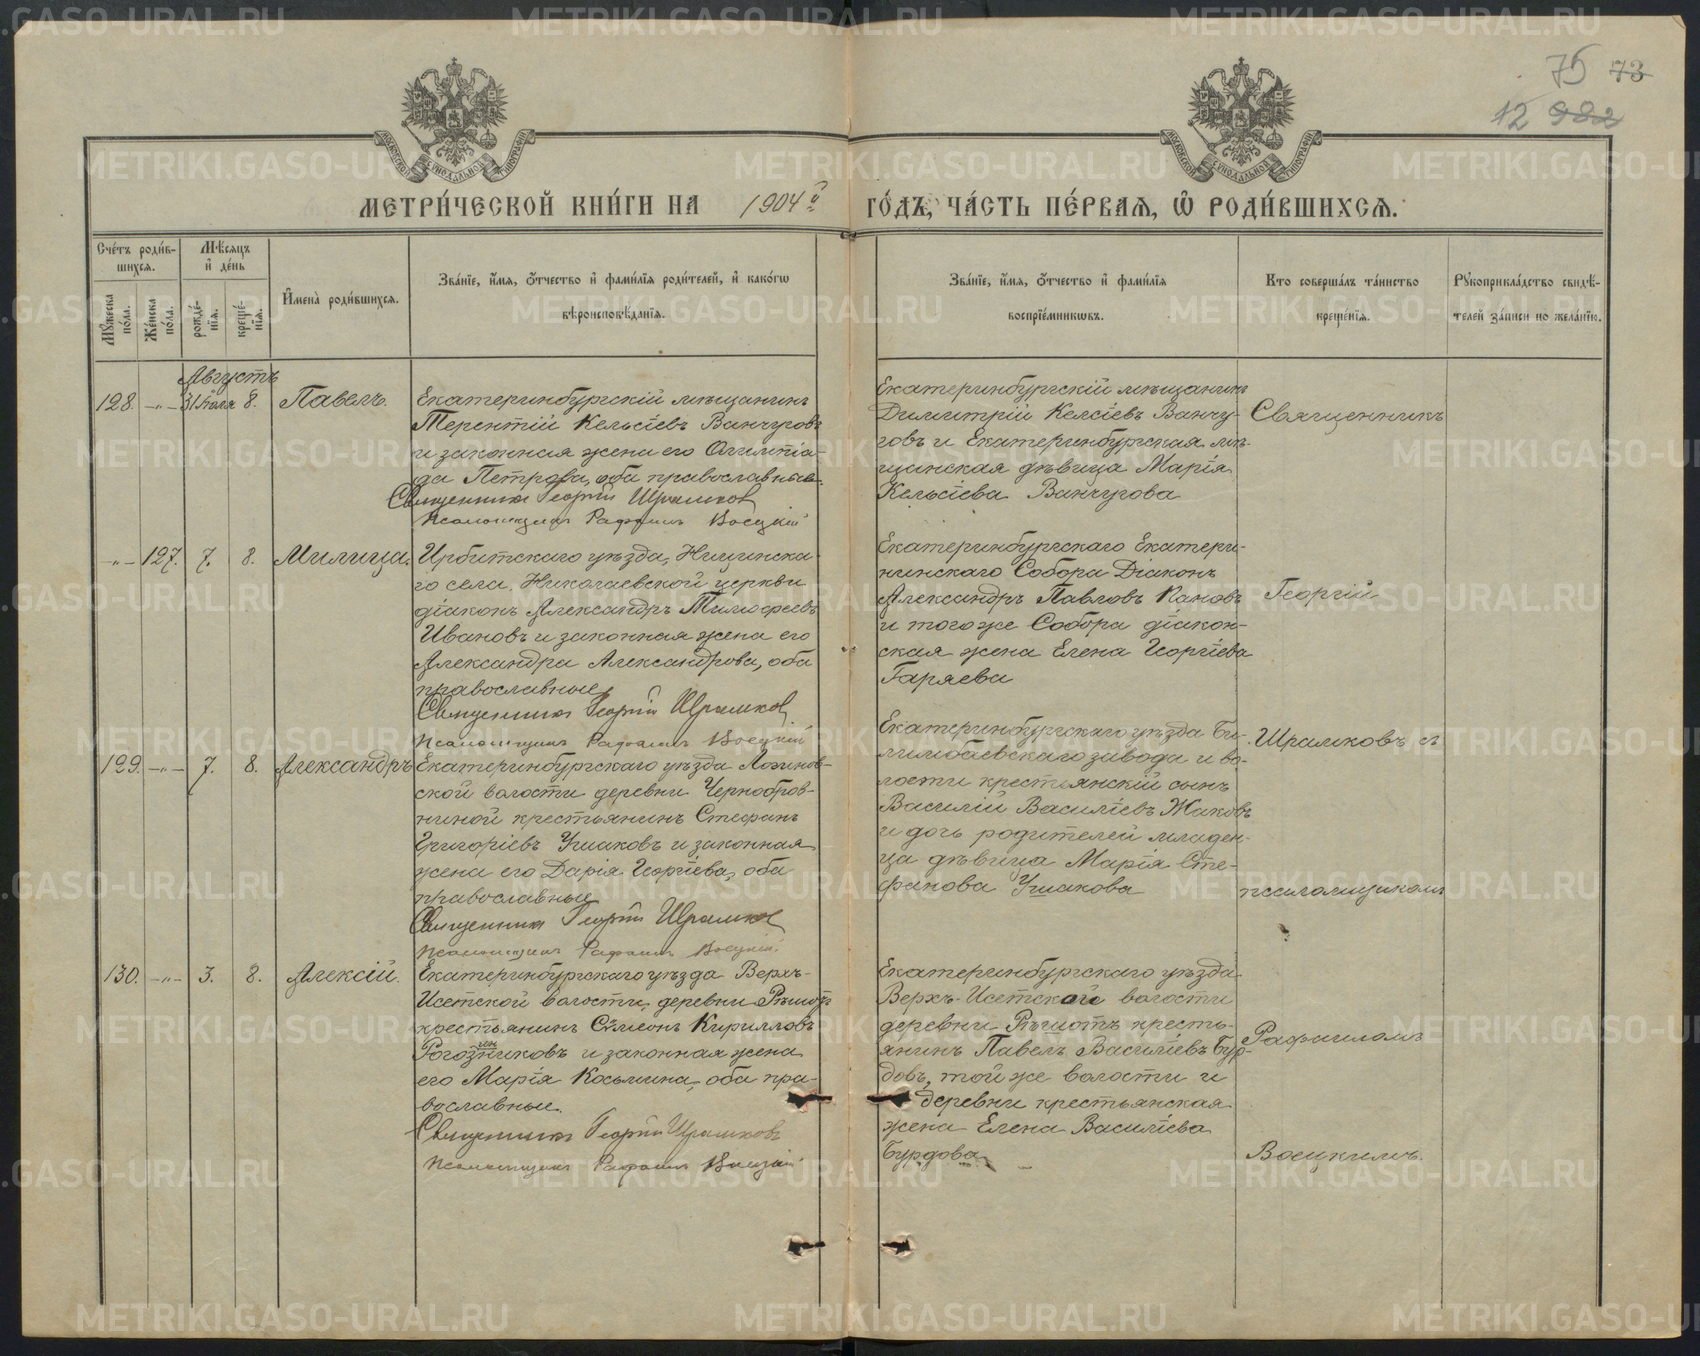 75 73
12 982
МОСКОВСКОЙ СѴНОДАЛЬНОЙ ТИПОГРАФІИ
МОСКОВСКОЙ СѴНОДАЛЬНОЙ ТИПОГРАФІИ
МЕТРИ́ЧЕСКОЙ КНИ́ГИ НА 1904й ГО́ДЪ, ЧА́СТЬ ПЕ́РВАЯ, Ѡ РОДИ́ВШИХСЯ.
Сче́тъ роди́в-
шихся.
Мꙋ́жеска по́ла.
Же́нска по́ла.
Мѣ́сяцъ и҆ де́нь
рожде́-
нїя.
креще́-
нїя.
И҆мена̀ роди́вшихся.
Зва́нїе, и҆́мя, ѻ҆́тчество и҆ фами́лїя роди́телей, и҆ како́гѡ
вѣроисповѣ́данїя.
Зва́нїе, и҆́мя, ѻ҆́тчество и҆ фами́лїя
воспрїе́мникѡвъ.
Кто̀ соверша́лъ та́инство
креще́нїя.
Рꙋкоприкла́дство свидѣ́-
телей за́писи по жела́нїю.
Августъ
128. -"- 31 Іюля 8. Павелъ.
Екатеринбургскій мѣщанинъ
Терентій Кельсіевъ Ванчуговъ
и законная жена его Олимпіа-
да Петрова, оба православные.
Священникъ Георгій Шрамковъ
Псаломщикъ Рафаилъ Воецкій
Екатеринбургскій мѣщанинъ
Димитрій Келсіевъ Ванчу-
говъ и Екатеринбургская мѣ-
щанская дѣвица Марія
Кельсіева Ванчугова
Священникъ
-"- 127. 7. 8. Милица.
Ирбитскаго уѣзда, Ницинска-
го села, Николаевской церкви
діаконъ Александръ Тимофеевъ
Ивановъ и законная жена его
Александра Александрова, оба
православные
Священникъ Георгій Шрамковъ
Псаломщикъ Рафаилъ Воецкій
Екатеринбургскаго Екатери-
нинскаго Собора Діаконъ
Александръ Павловъ Кановъ
и того же Собора діакон-
ская жена Елена Георгіева
Гаряева
Георгій
129. -"- 7. 8. Александръ
Екатеринбургскаго уѣзда Логинов-
ской волости деревни Чернобров-
киной крестьянинъ Стефанъ
Григоріевъ Ушаковъ и законная
жена его Дарія Георгіева, оба
православные
Священникъ Георгій Шрамковъ
Псаломщикъ Рафаилъ Воецкій.
Екатеринбургскаго уѣзда Би-
лимбаевскаго завода и во-
лости крестьянскій сынъ
Василій Василіевъ Жаковъ
и дочь родителей младен-
ца дѣвица Марія Сте-
фанова Ушакова
Шрамковъ съ
псаломщикомъ
130. -"- 3. 8. Алексій.
Екатеринбургскаго уѣзда Верхъ-
Исетской волости, деревни Рѣшотъ
крестьянинъ Сѵмеонъ Кирилловъ
Рогозниковъ и законная жена
ин
его Марія Косьмина, оба пра-
вославные.
Священникъ Георгій Шрамковъ
Псаломщикъ Рафаилъ Воецкій
Екатеринбургскаго уѣзда
Верхъ-Исетской волости
деревни Рѣшотъ кресть-
янинъ Павелъ Василіевъ Бур-
довъ, той же волости и
деревни крестьянская
жена Елена Василіева
Бурдова
Рафаиломъ
Воецкимъ.
METRIKI.GASO-URAL.RU